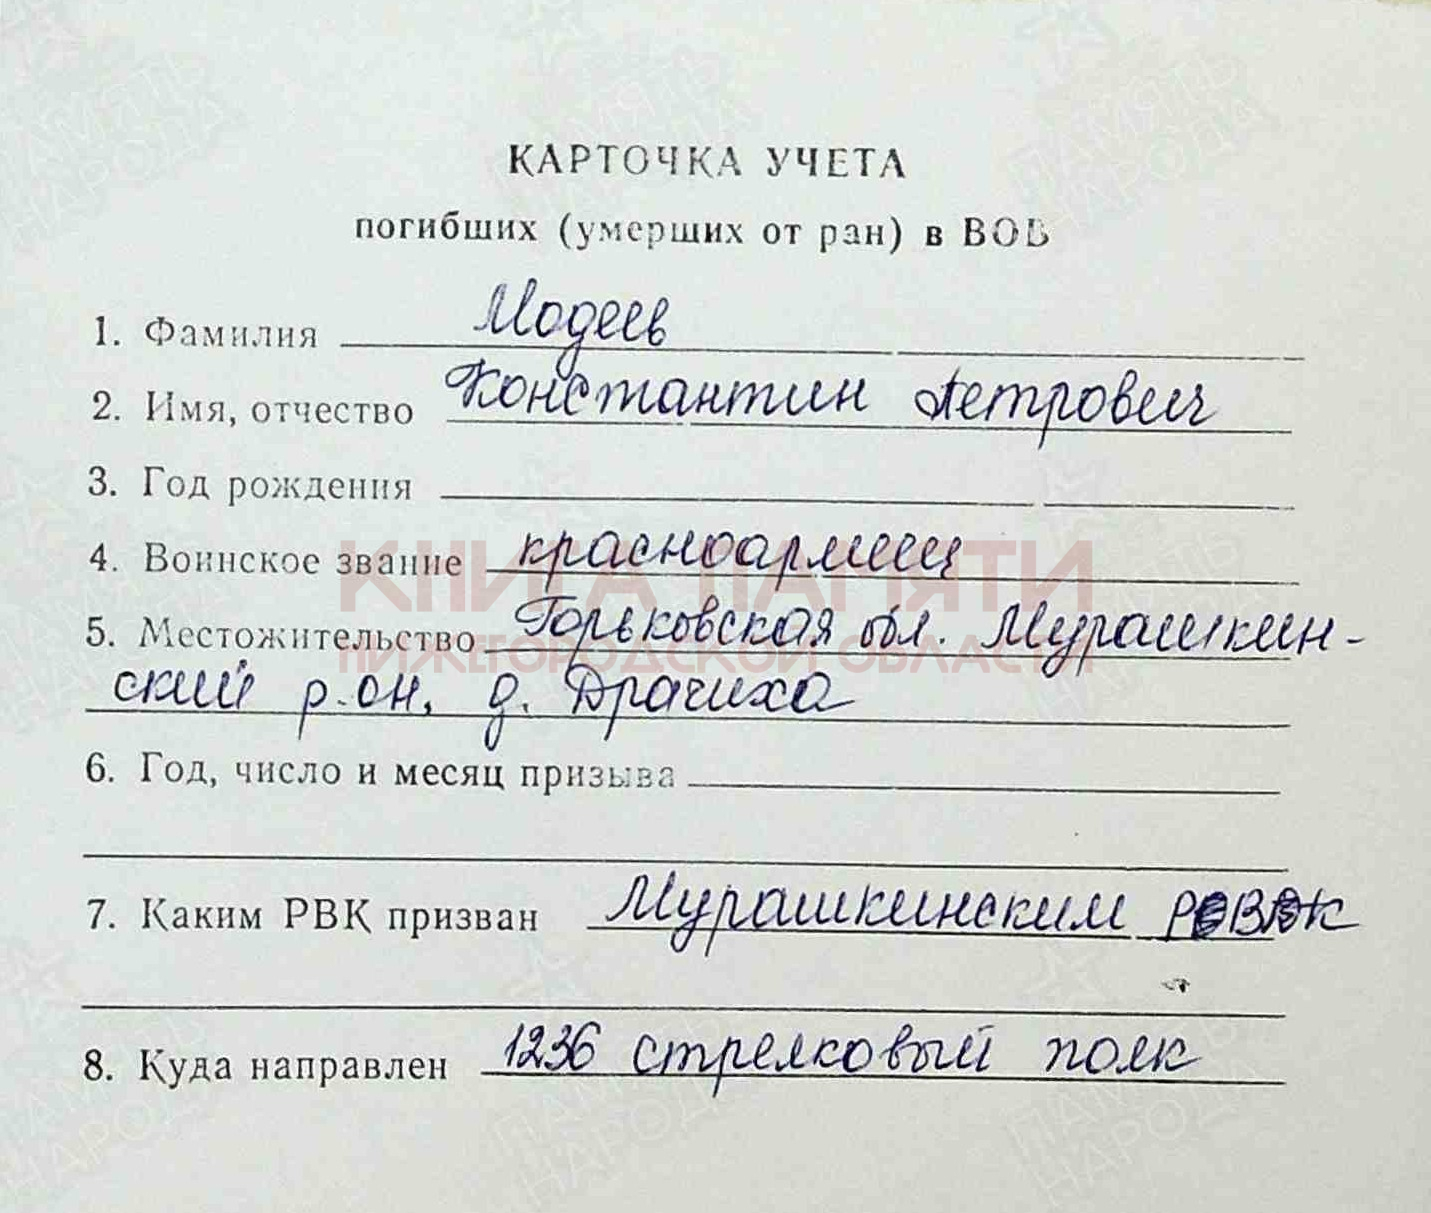 КАРТОЧКА УЧЕТА
погибших (умерших от ран) в ВОВ
1. Фамилия Модеев
2. Имя, отчество Константин Петрович
3. Год рождения
4. Воинское звание красноармеец
КНИГА ПАМЯТИ
5. Местожительство Горьковская обл. Мурашкин-
НИЖЕГОРОДСКОЙ ОБЛАСТИ
ский р-он, д. Драчиха
6. Год, число и месяц призыва
7. Каким РВК призван Мурашкинским РВК
8. Куда направлен 1236 стрелковый полк
ПАМЯТЬ
НАРОДА